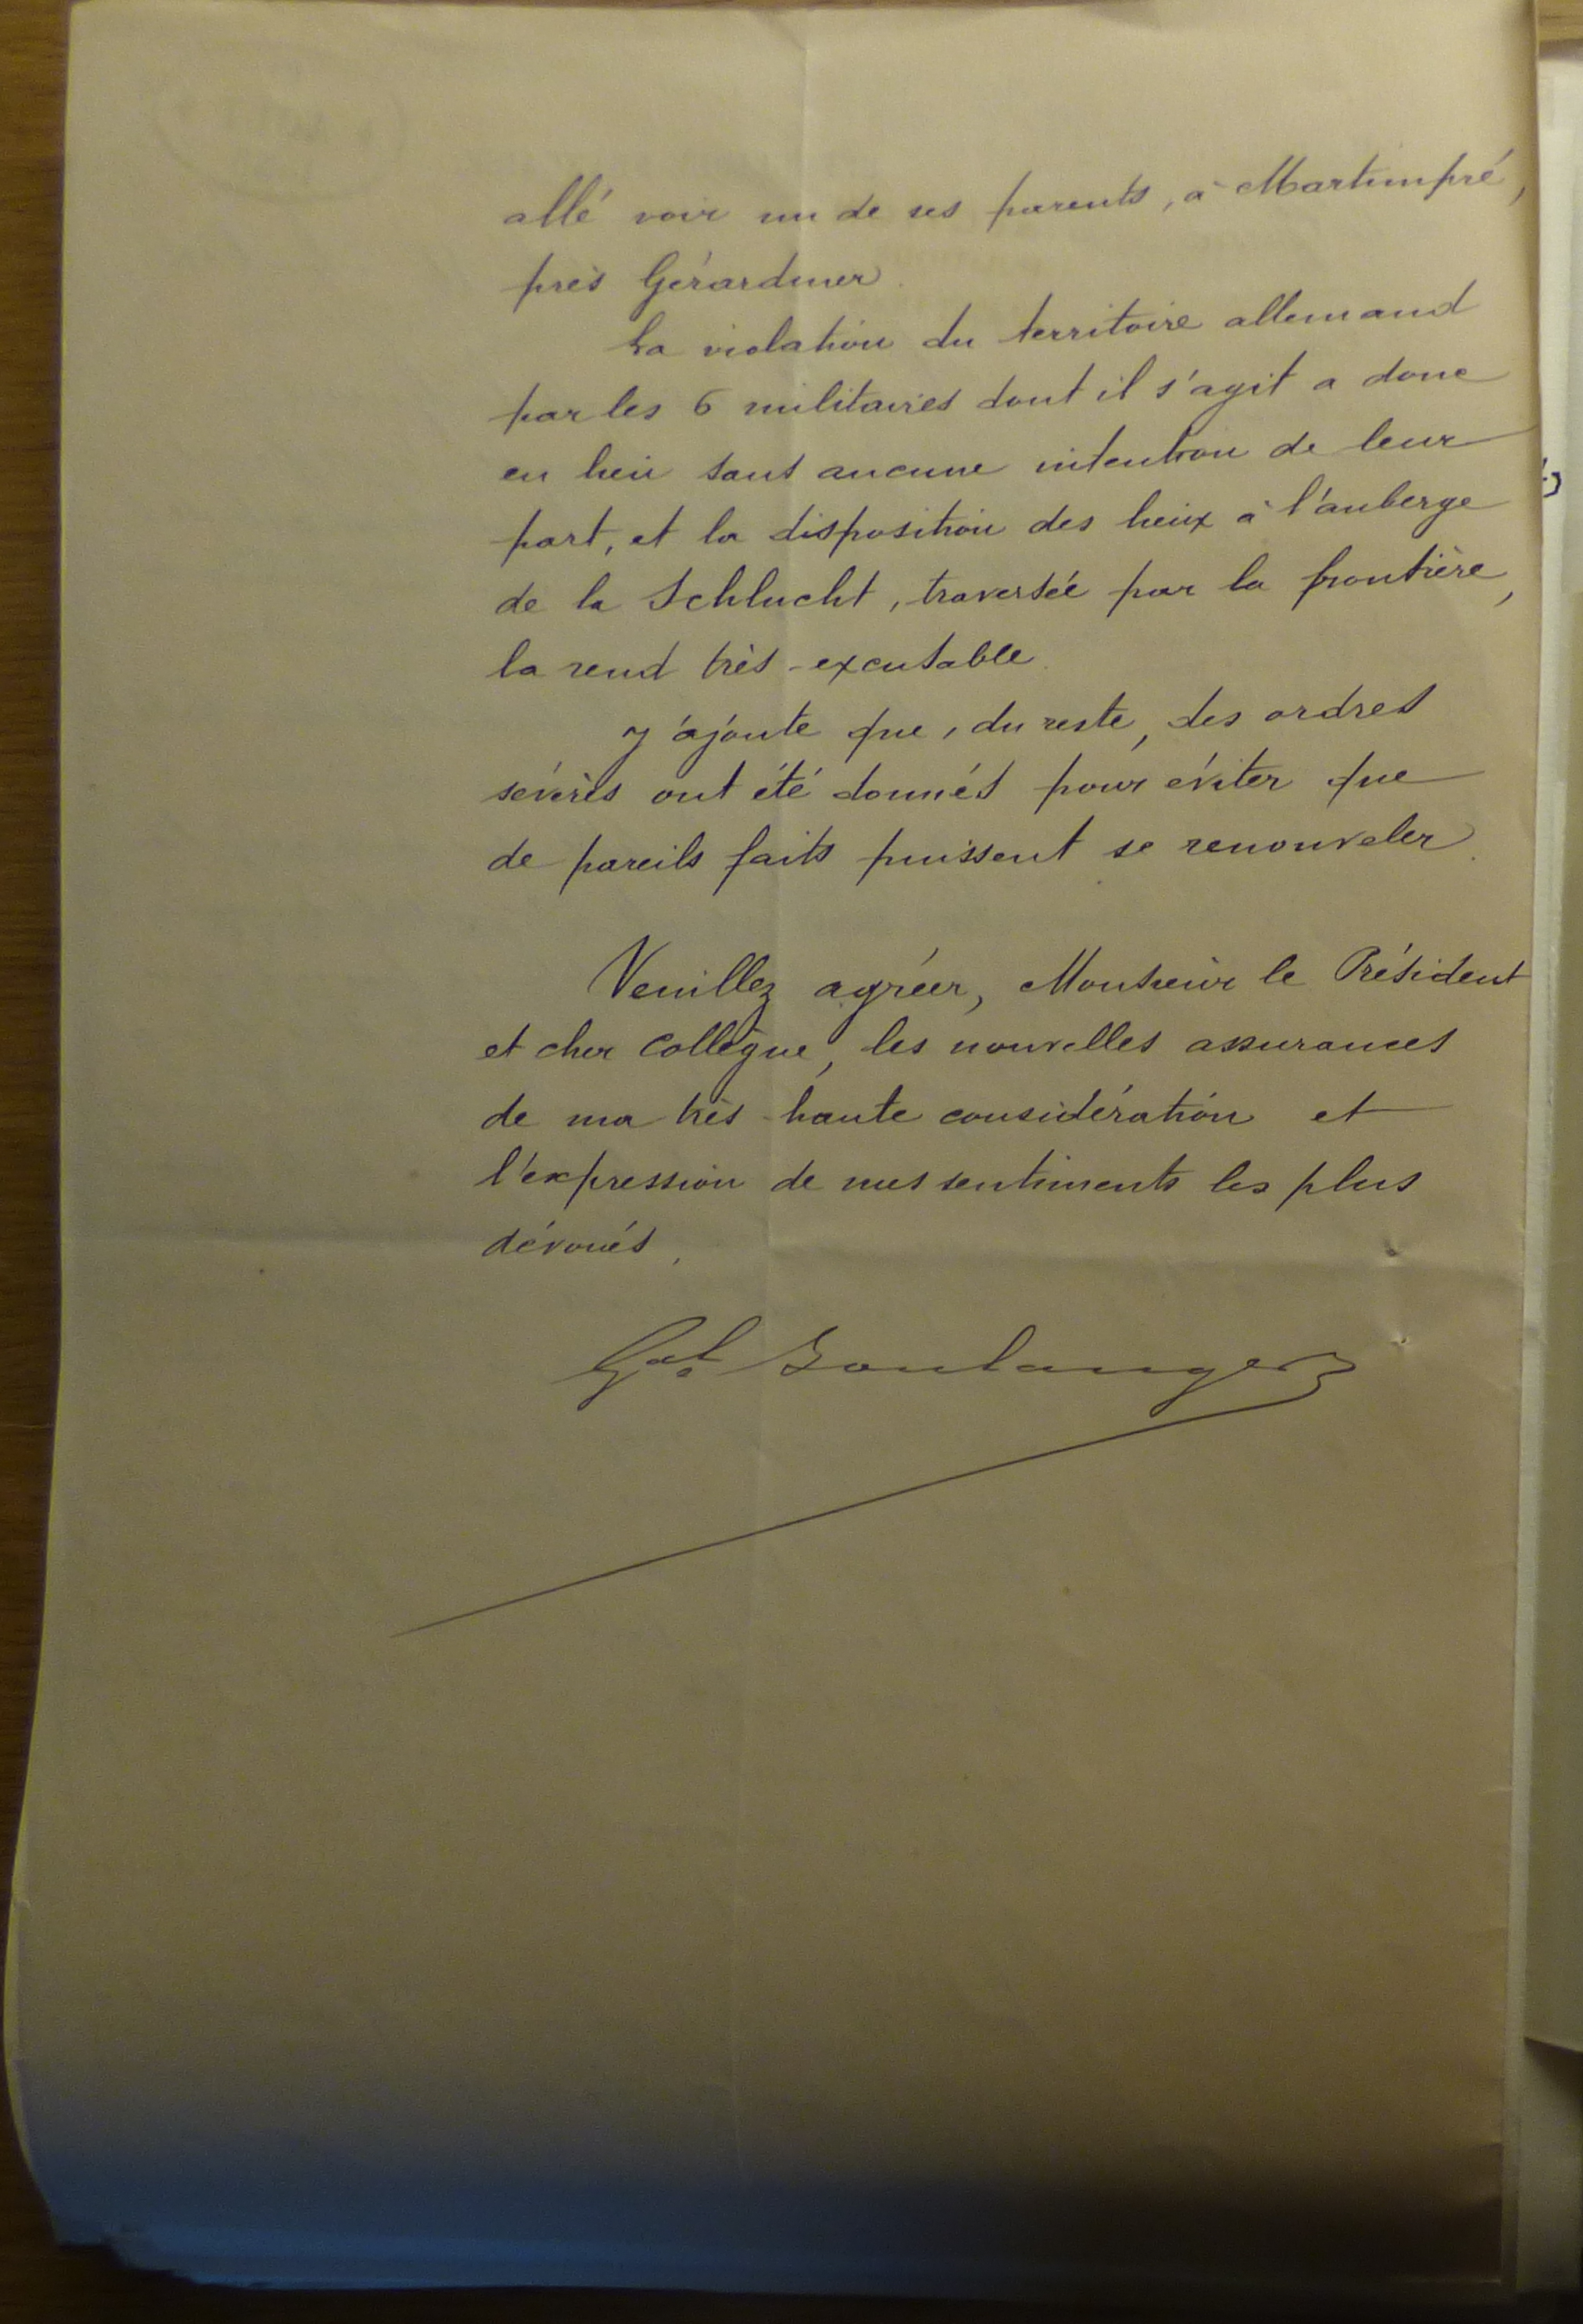 allé voir un de ses parents, à Martimpré,
près Gérardmer.
La violation du territoire allemand
par les 6 militaires dont il s'agit a donc
eu lieu sans aucune intention de leur
part, et la disposition des lieux à l'auberge
de la Schlucht, traversée par la frontière,
la rend très-excusable.
J'ajoute que, du reste, des ordres
sévères ont été donnés pour éviter que
de pareils faits puissent se renouveler.
Veuillez agréer, Monsieur le Président
et cher Collègue, les nouvelles assurances
de ma très haute considération et
l'expression de mes sentiments les plus
dévoués,
Gal Boulanger